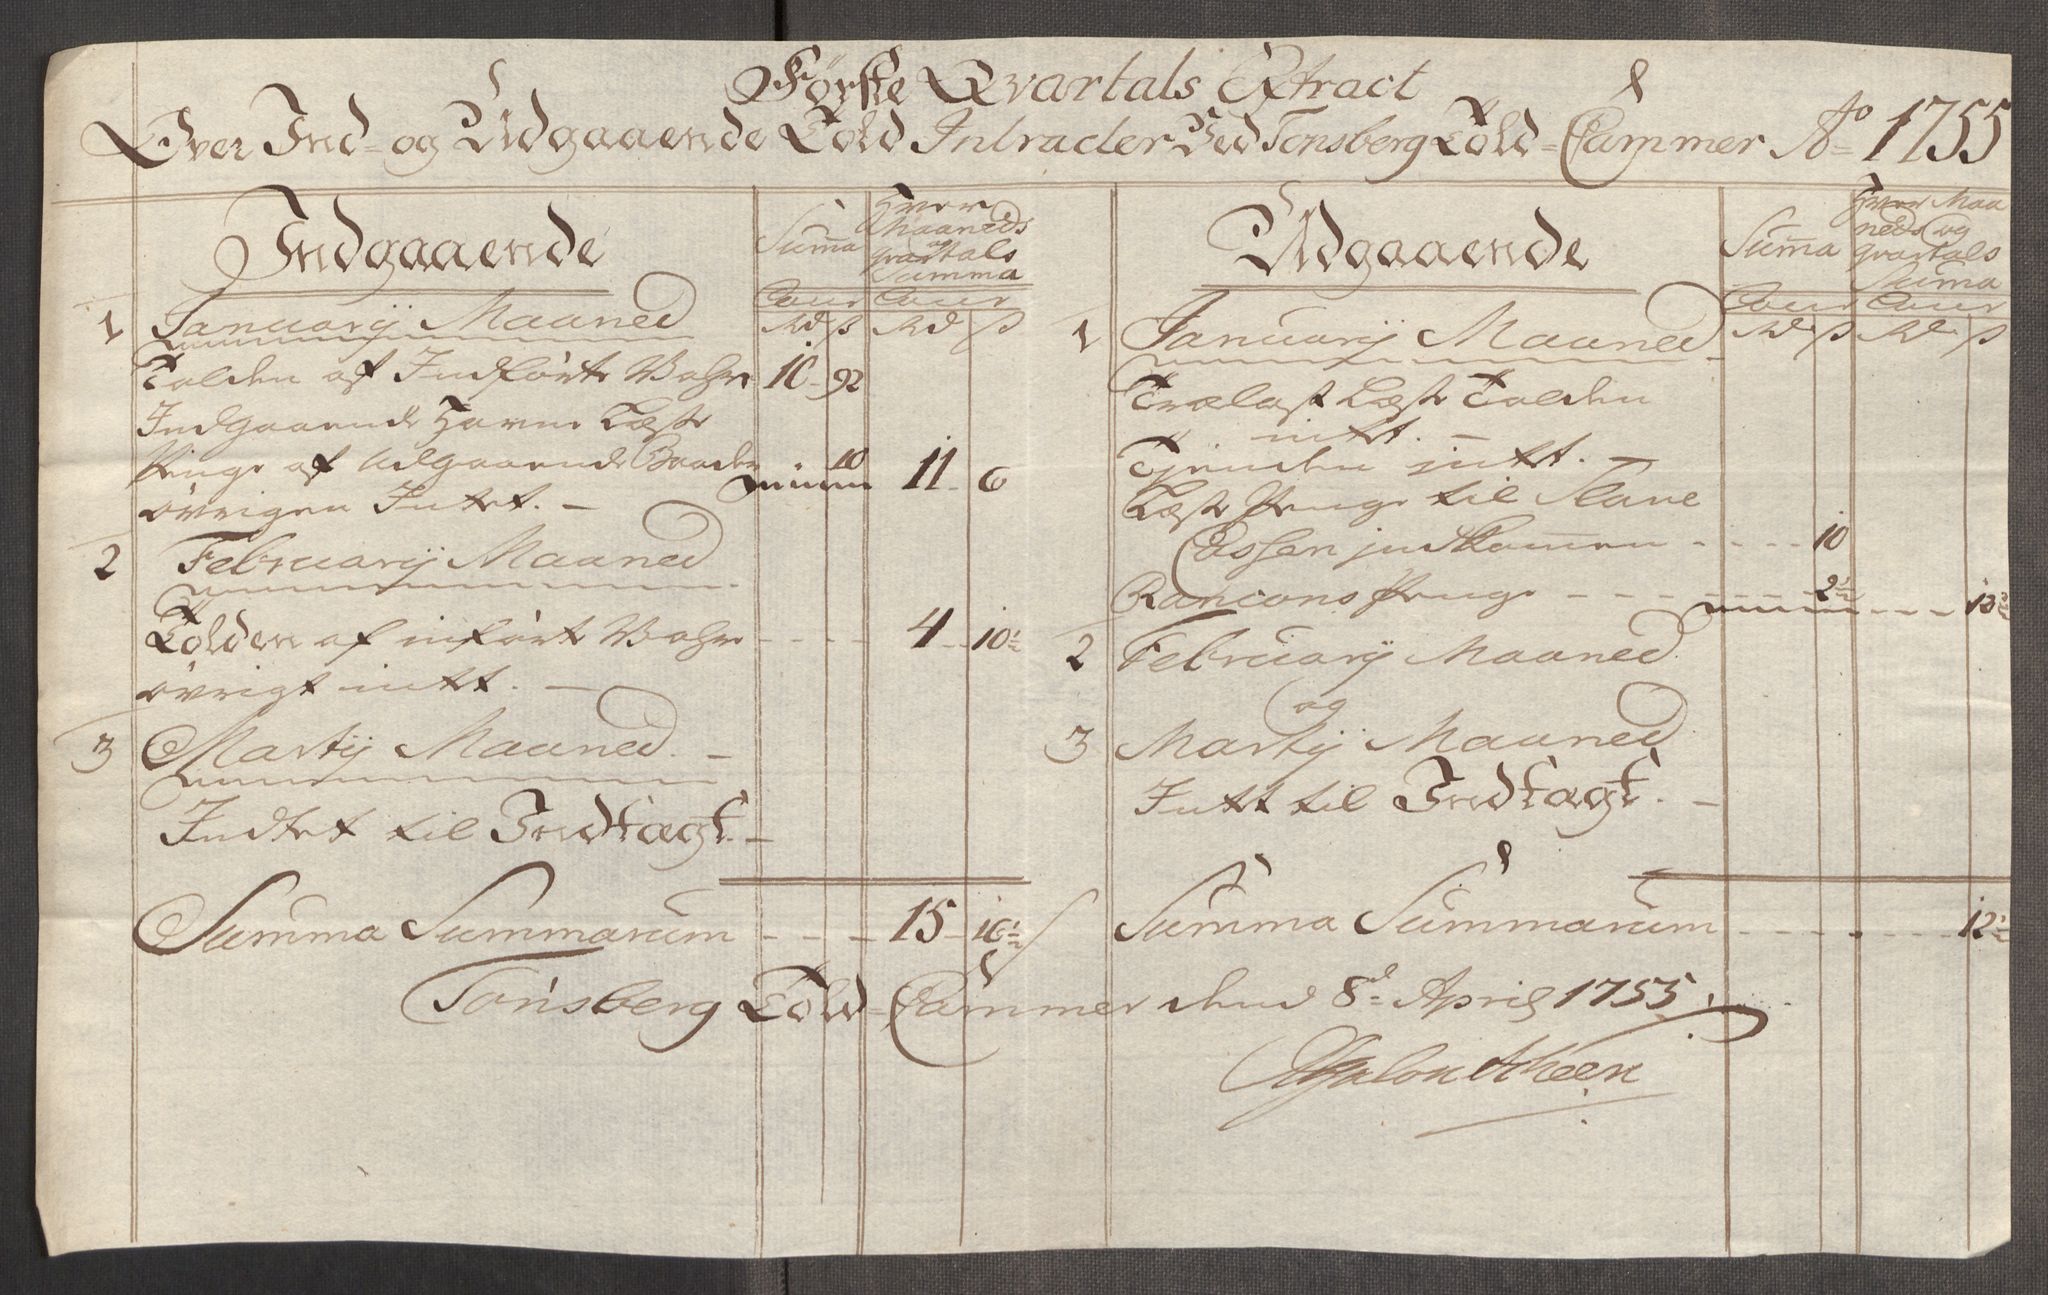 Første Qvartals Extract
Over Ind- og Udgaaende Told Intrader Ved Tonsberg Told-Cammer Ao 1755
Indgaaende
Suma
Hver
Maaneds
og
qvartals
Summa
Cour Cour
Rd ß Rd ß
1 Januarij Maaned
Tolden af Indførte Vahre 10 - 92
Indgaaende Havne Læste
Penge af Udgaaende Baaden - 10 11 - 6
øvrigen Intet. -
2 Februarij Maaned
Tolden af inførte Vahre - - - 4 - 10½
øvrigt intet. -
3 Martij Maaned. -
Indtet til Indtægt. -
Summa Summarum - - - 15 - 16½
Udgaaende
Suma
Hver Maa
neds og
qvartals
Suma
Cour Cour
Rd ß Rd ß
1 Januarij Maaned
Trælast Læste Tolden
intet. -
Tienden intet. -
Læste Penge til Slave
Cassen indkommen - - - - 10
Rancons Penge - - - - 2½ - - - 12½
2 Februarij Maaned
og
3 Martij Maaned
Intet til Indtægt. -
Summa Summarum - - - - 12½
Tonsberg Told-Cammer den 8d April 1755